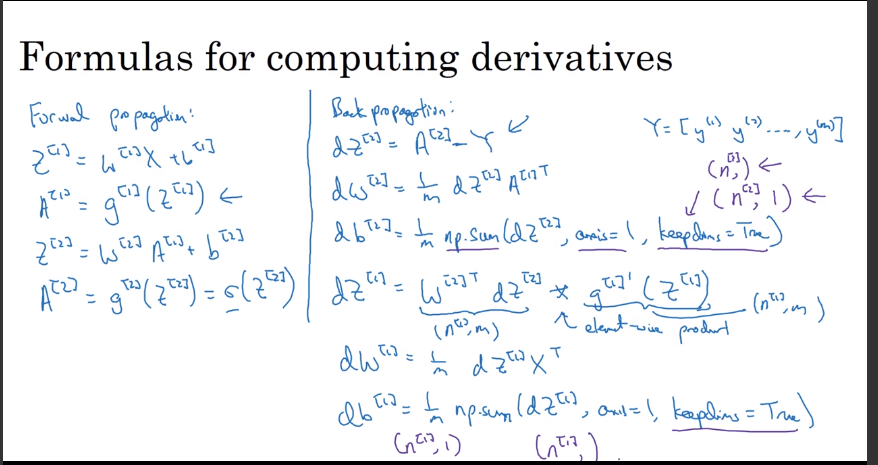 Formulas for computing derivatives
Forward propagation:
Z^[1] = W^[1]X + b^[1]
A^[1] = g^[1](Z^[1]) ←
Z^[2] = W^[2] A^[1] + b^[2]
A^[2] = g^[2](Z^[2]) = σ(Z^[2])
Back propagation:
dZ^[2] = A^[2] - Y ←
dW^[2] = 1/m dZ^[2] A^[1]T
db^[2] = 1/m np.sum(dZ^[2], axis=1, keepdims=True)
dZ^[1] = W^[2]T dZ^[2] * g^[1]'(Z^[1])
(n^[1], m)
element-wise product
(n^[1], m)
dW^[1] = 1/m dZ^[1] X^T
db^[1] = 1/m np.sum(dZ^[1], axis=1, keepdims=True)
(n^[1], 1)
(n^[1],)
Y = [y^(1) y^(2) ..., y^(m)]
(n^[2],) ←
(n^[2], 1) ←